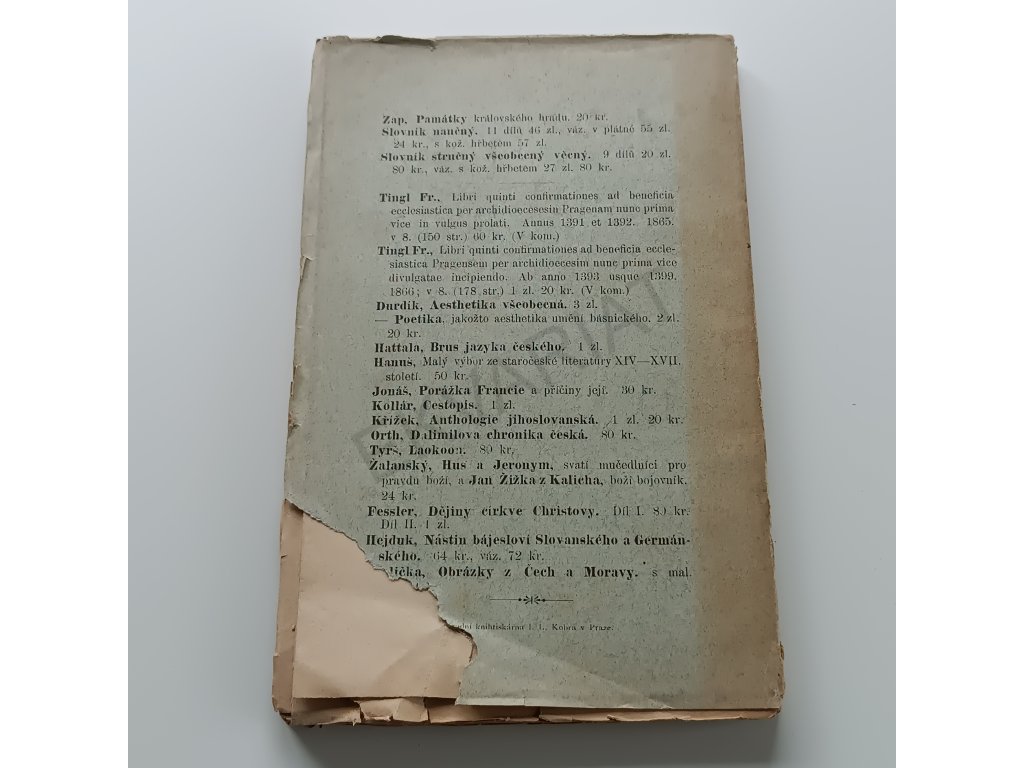 Zap, Památky královského hradu. 20 kr.
Slovník naučný. 11 dílů 46 zl., váz. v plátně 55 zl.
24 kr., s kož. hřbetem 57 zl.
Slovník stručný všeobecný věcný. 9 dílů 20 zl.
80 kr., váz. s kož. hřbetem 27 zl. 80 kr.
Tingl Fr., Libri quinti confirmationes ad beneficia
ecclesiastica per archidioecesesin Pragenam nunc prima
vice in vulgus prolati. Annus 1391 et 1392. 1865.
v 8. (150 str.) 60 kr. (V kom.)
Tingl Fr., Libri quinti confirmationes ad beneficia eccle-
siastica Pragensem per archidioecesim nunc prima vice
divulgatae incipiendo. Ab anno 1393 usque 1399.
1866; v 8. (178 str.) 1 zl. 20 kr. (V kom.)
Durdík, Aesthetika všeobecná. 3 zl.
— Poetika, jakožto aesthetika umění básnického. 2 zl.
20 kr.
Hattala, Brus jazyka českého. 1 zl.
Hanuš, Malý výbor ze staročeské literatury XIV—XVII.
století. 50 kr.
Jonáš, Porážka Francie a příčiny její. 30 kr.
Kollár, Cestopis. 1 zl.
Křížek, Anthologie jihoslovanská. 1 zl. 20 kr.
Orth, Dalimilova chronika česká. 80 kr.
Tyrš, Laokoon. 80 kr.
Žalanský, Hus a Jeronym, svatí mučedlníci pro
pravdu boží, a Jan Žižka z Kalicha, boží bojovník.
24 kr.
Fessler, Dějiny církve Christovy. Díl I. 80 kr.
Díl II. 1 zl.
Hejduk, Nástin bájesloví Slovanského a Germán-
ského. 64 kr., váz. 72 kr.
lička, Obrázky z Čech a Moravy. s mal.
knihtiskárna I. L. Kobra v Praze.